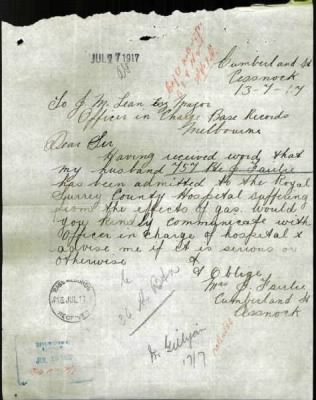 JUL 27 1917
Cumberland St
Cessnock
13-7-17
To J. M. Lean Esq Major
Officer in Charge Base Records
Melbourne
Dear Sir
Having received word that
my husband 757 Pte J Fairlie
has been admitted to the Royal
Surrey County Hospital suffering
from the effects of gas. Would
you kindly communicate with
Officer in Charge of hospital &
advise me if it is serious or
otherwise
& Oblige
Mrs J. Fairlie
Cumberland St
Cessnock
BASE RECORDS
JUL 17
36 Bn
17/7